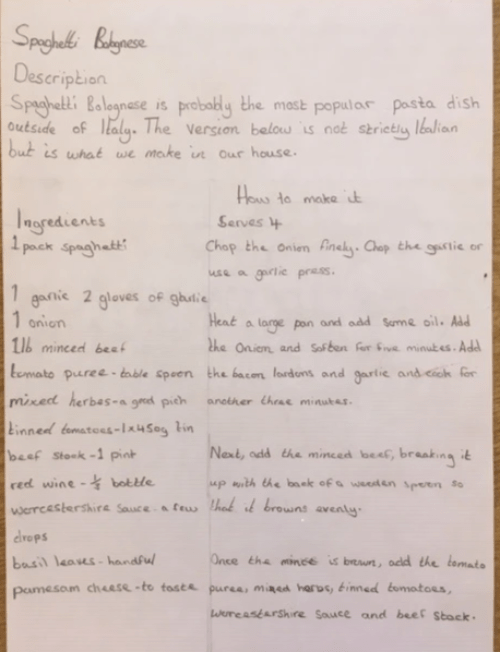 Spaghetti Bolognese
Description
Spaghetti Bolognese is probably the most popular pasta dish
outside of Italy. The version below is not strictly Italian
but is what we make in our house.
Ingredients
1 pack spaghetti
1 garlic 2 gloves of garlic
1 onion
1lb minced beef
tomato puree - table spoon
mixed herbes - a good pich
tinned tomatoes - 1x450g tin
beef stock - 1 pint
red wine - bottle
worcestershire sauce - a few
drops
basil leaves - handful
parmesam cheese - to taste
How to make it
Serves 4
Chop the onion finely. Chop the garlic or
use a garlic press.
Heat a large pan and add some oil. Add
the Onion, and Soften for five minutes. Add
the bacon lardons and garlic and cook for
another three minutes.
Next, add the minced beef, breaking it
up with the back of a wooden spoon so
that it browns evenly.
Once the mince is brown, add the tomato
puree, mixed herbs, tinned tomatoes,
Worcestershire sauce and beef stock.